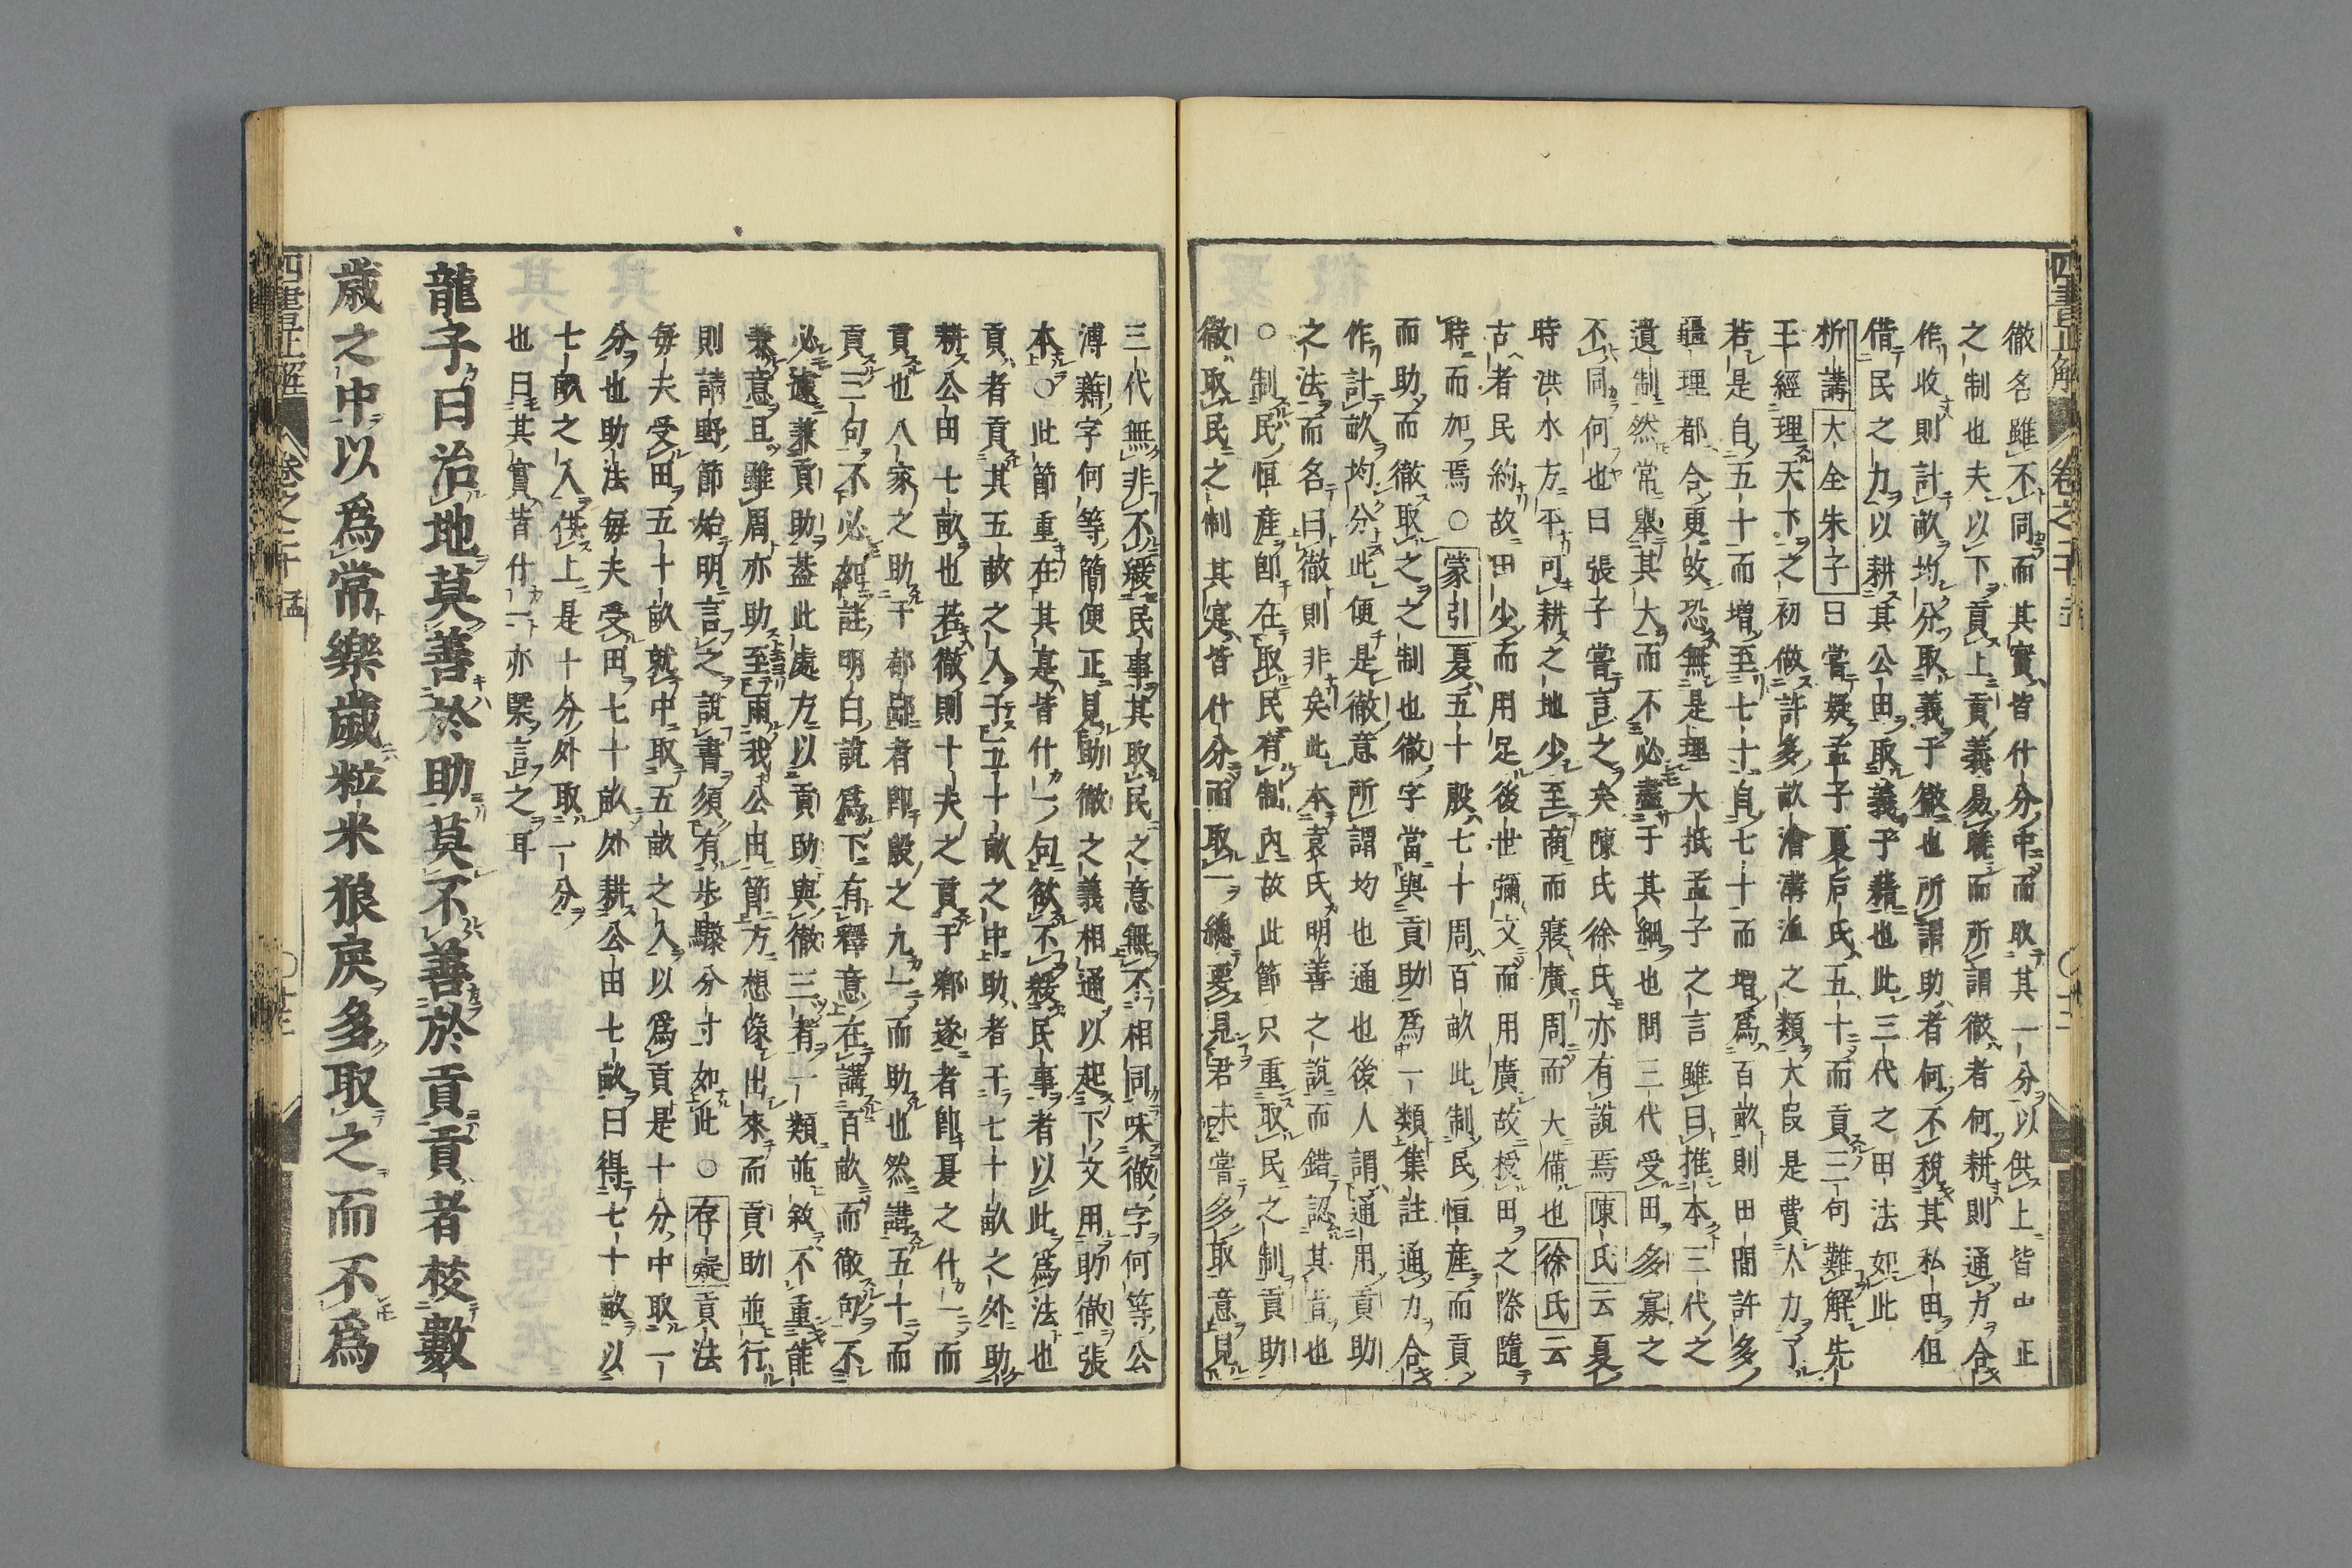 徹名雖不同而其實皆什分中而取其一分以供上皆中正
之制也夫以下貢上貢義易曉而所謂徹者何耕則通力合
作收則計畝均分取義于徹也所謂助者何不稅其私田但
借民之力以耕其公田取義于藉也此三代之田法如此
析講大全朱子曰嘗疑孟子夏后氏五十而貢三句難解先
王經理天下之初做許多畝澮溝洫之類大段是費人力了
若是自五十而增至七十自七十而增爲百畝則田間許多
疆理都合更改恐無是理大抵孟子之言雖曰推本三代之
遺制然常舉其大而不必盡于其細也問三代受田多寡之
不同何也曰張子嘗言之矣陳氏徐氏亦有說焉陳氏云夏
時洪水方平可耕之地少至商而寖廣周而大備也徐氏云
古者民約故田少而用足後世彌文而用廣故授田之際隨
時而加焉○蒙引夏五十殷七十周百畝此制民恒產而貢
而助而徹取之之制也徹字當與貢助爲一類集註通力合
作計畝均分此便是徹意所謂均也通也後人謂通用貢助
之法而各曰徹則非矣此本袁氏明善之說而錯認其旨也
○制民恒產卽在取民有制內故此節只重取民之制貢助
徹取民之制其寔皆什分而取一總要見君未嘗多取意見
三代無非不緩民事其取民之意無不相同味徹字何等公
溥藉字何等簡便正見助徹之義相通以起下文用助徹張
本○此節重在其寔皆什一句欲不緩民事者以此爲法也
貢者貢其五畝之入于五十畝之中助者于七十畝之外助
耕公田七畝也若徹則十夫之貢于鄉遂者卽夏之什一而
貢也八家之助于都鄙者卽殷之九一而助也然講五十而
貢三句不必如註明白說爲下有釋意在講百畝而徹句不
必遽兼貢助葢此處方以貢助與徹三者一類並敘不重能
兼意且雖周亦助至雨我公田節方想像出來而貢助並行
則請野節始明言之說書須有步驟分寸如此○存疑貢法
每夫受田五十畝就中取五畝之入以爲貢是十分中取一
分也助法每夫受田七十畝外耕公田七畝曰得七十畝以
七畝之入供上是十分外取一分
也曰其實皆什一亦槩言之耳
龍子曰治地莫善於助莫不善於貢貢者校數
歲之中以爲常樂歲粒米狼戾多取之而不爲
四書正解 卷之二十 孟